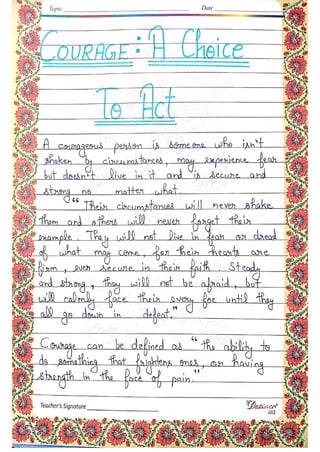 Topic Date
COURAGE: A Choice
To Act
A courageous person is someone who isn't
shaken by circumstances, may experience fear
but doesn't live in it and is secure and
strong no matter what.
"Their circumstances will never shake
them and others will never forget their
example. They will not live in fear or dread
of what may come, for their hearts are
firm, ever secure in their faith. Steady
and strong, they will not be afraid, but
will calmly face their every foe until they
all go down in defeat."
Courage can be defined as "the ability to
do something that frightens ones, or having
strength in the face of pain."
Teacher's Signature
Desirer